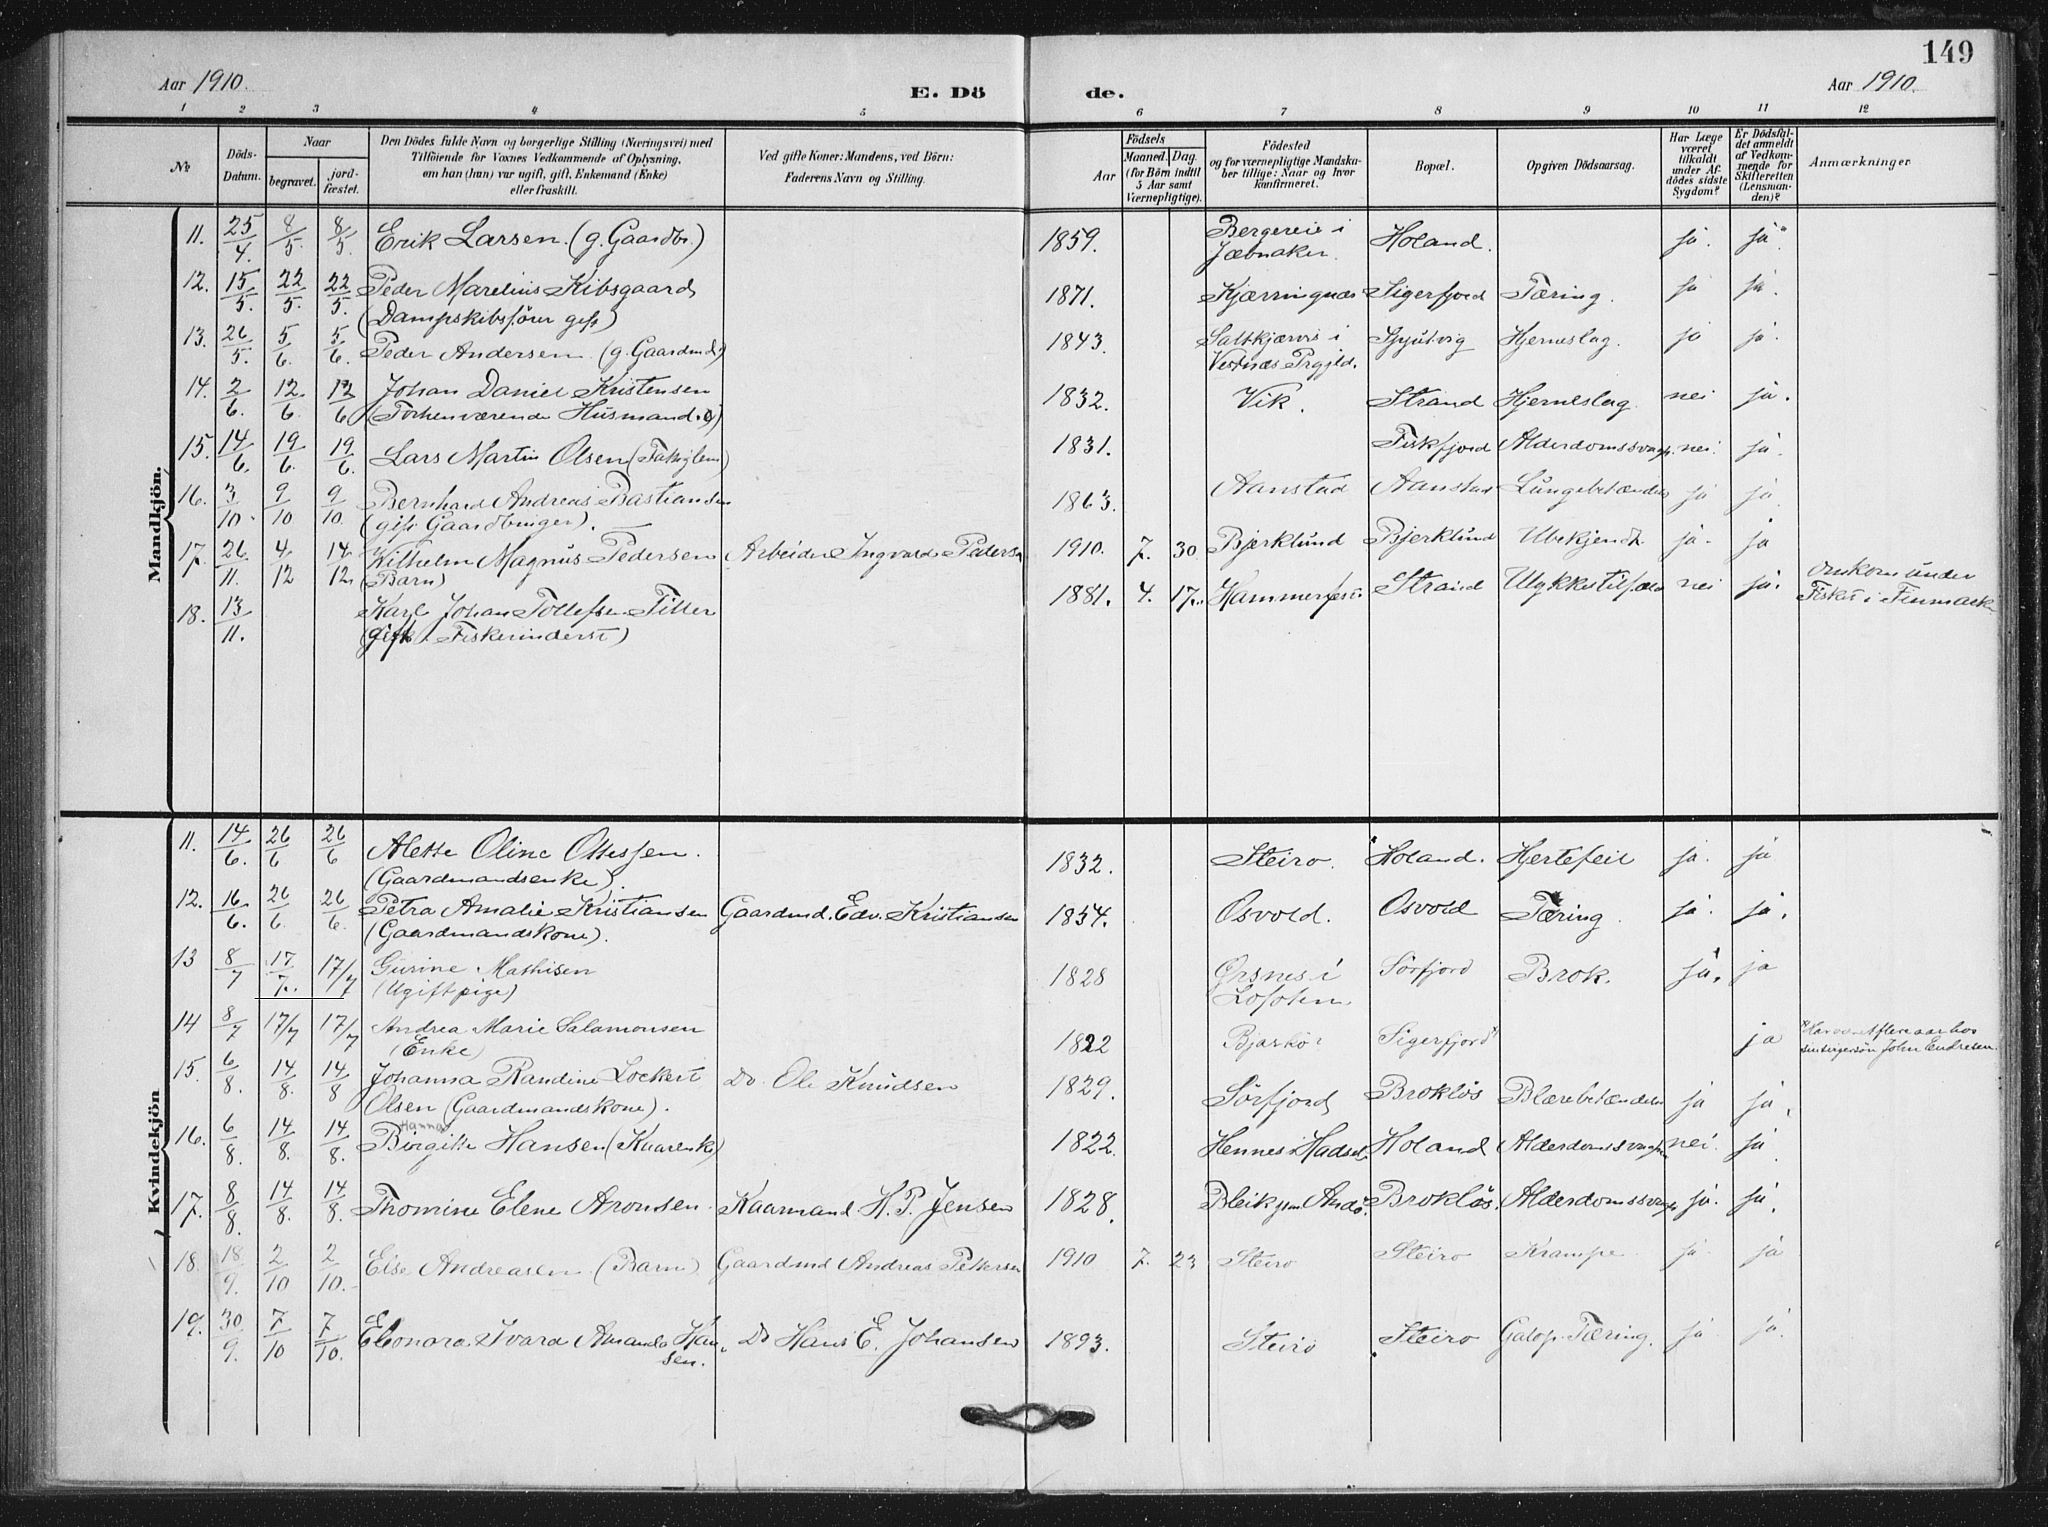 149
Aar 1910. E. Dö de. Aar 1910.
1 2 3 4 5 6 7 8 9 10 11 12
№ Döds-Datum. Naar begravet. jordfæstet. Den Dödes fulde Navn og borgerlige Stilling (Næringsvei) med Tilföiende for Voxnes Vedkommende af Oplysning, om han (hun) var ugift, gift, Enkemand (Enke) eller fraskilt. Ved gifte Koner: Mandens, ved Börn: Faderens Navn og Stilling. Födsels Aar Maaned. Dag. (for Börn indtil 5 Aar samt Værnepligtige). Födested og for værnepligtige Mandskaber tillige: Naar og hvor konfirmeret. Bopæl. Opgiven Dödsaarsag. Har Læge været tilkaldt under Afdödes sidste Sygdom? Er Dödsfaldet anmeldt af Vedkommende for Skifteretten (Lensmanden)? Anmærkninger
Mandkjön.
11. 25/4. 8/5. 8/5. Erik Larsen. (g. Gaardbr.) 1859. Bergereie i Jæbnaker. Holand. ja. ja.
12. 15/5. 22/5. 22/5. Peder Marelius Kibsgaard (Dampskibsfører gift) 1871. Kjærringnæs Sigerfjord Tæring. ja ja.
13. 26/5. 5/6. 5/6. Peder Andersen (g. Gaardmd.) 1843. i Vestnæs Prgjld. Hjerneslag. ja ja.
14. 2/6. 12/6. 12/6 Johan Daniel Kristensen (Forhenværende Husmand. g) 1832. Vik. Strand Hjerneslag. nei ja.
15. 14/6. 19/6. 19/6. Lars Martin Olsen 1831. Fiskfjord Alderdomssvagh. nei. ja.
16. 3/10. 9/10 9/10. Bernhard Andreas Bastiansen (gift Gaardbruger). 1863. Aanstad Aanstad Lungebetændelse ja ja
17. 26/11. 4/12 14/12. Vilhelm Magnus Pedersen (Barn) Arbeider Ingvald Peders 1910. 7. 30 Bjerklund Bjerklund Ubekjendt. ja. ja
18. 13/11. Karl Johan Tollefsen Titter (gift Fiskerinderst) 1881. 4. 17. Hammerfest Strand Ulykkestilfæld nei ja. Omkom under Fiskeri i Finmarken
Kvindekjön
11. 14/6. 26/6 26/6 Alette Oline Ottessen. (Gaardmandsenke). 1832. Steiro. Holand. Hjertefeil ja. ja
12. 16/6. 26/6. 26/6. Petra Amalie Kristiansen (Gaardmandskone). Gaardmd. Edv. Kristiansen 1854. Osvold. Osvold Tæring ja. ja.
13 8/7 17/7. 17/7 Gurine Mathisen (Ugift pige) 1828 Ørsnes i Lofoten Sörfjord Brok. ja. ja
14 8/7 17/7 17/7 Andrea Marie Salamonsen (Enke) 1822 Bjarkö Sigerfjord ja Har været flere aar hos sin svigersön John Endresen.
15. 6/8. 14/8. 14/8 Johanna Randine Lockert Olsen (Gaardmandskone). Do. Ole Knudsen 1829. Sörfjord Brokløs Blærebetændelse ja ja.
16. 6/8. 14/8. 14/8. Hanna Birgitte Hansen (Kaarenke) 1822. Hennes i Hadsel Holand Alderdomssvagh. nei. ja.
17. 8/8. 14/8. 14/8. Thomine Elene Aronsen. Kaarmand H. P. Jensen 1828. Bleik Andö. Brokløs. Alderdomssvagh. ja. ja.
18. 18/9. 2/10 2/10. Else Andreasen (Barn) Gaardmd Andreas Pettersen 1910 7. 23 Steiro Steiro Krampe. ja. ja
19. 30/9. 7/10 7/10. Eleonora Ivara Amanda Hansen. Do Hans E. Johansen 1893. Steiro Steiro Galop. Tæring. ja ja.